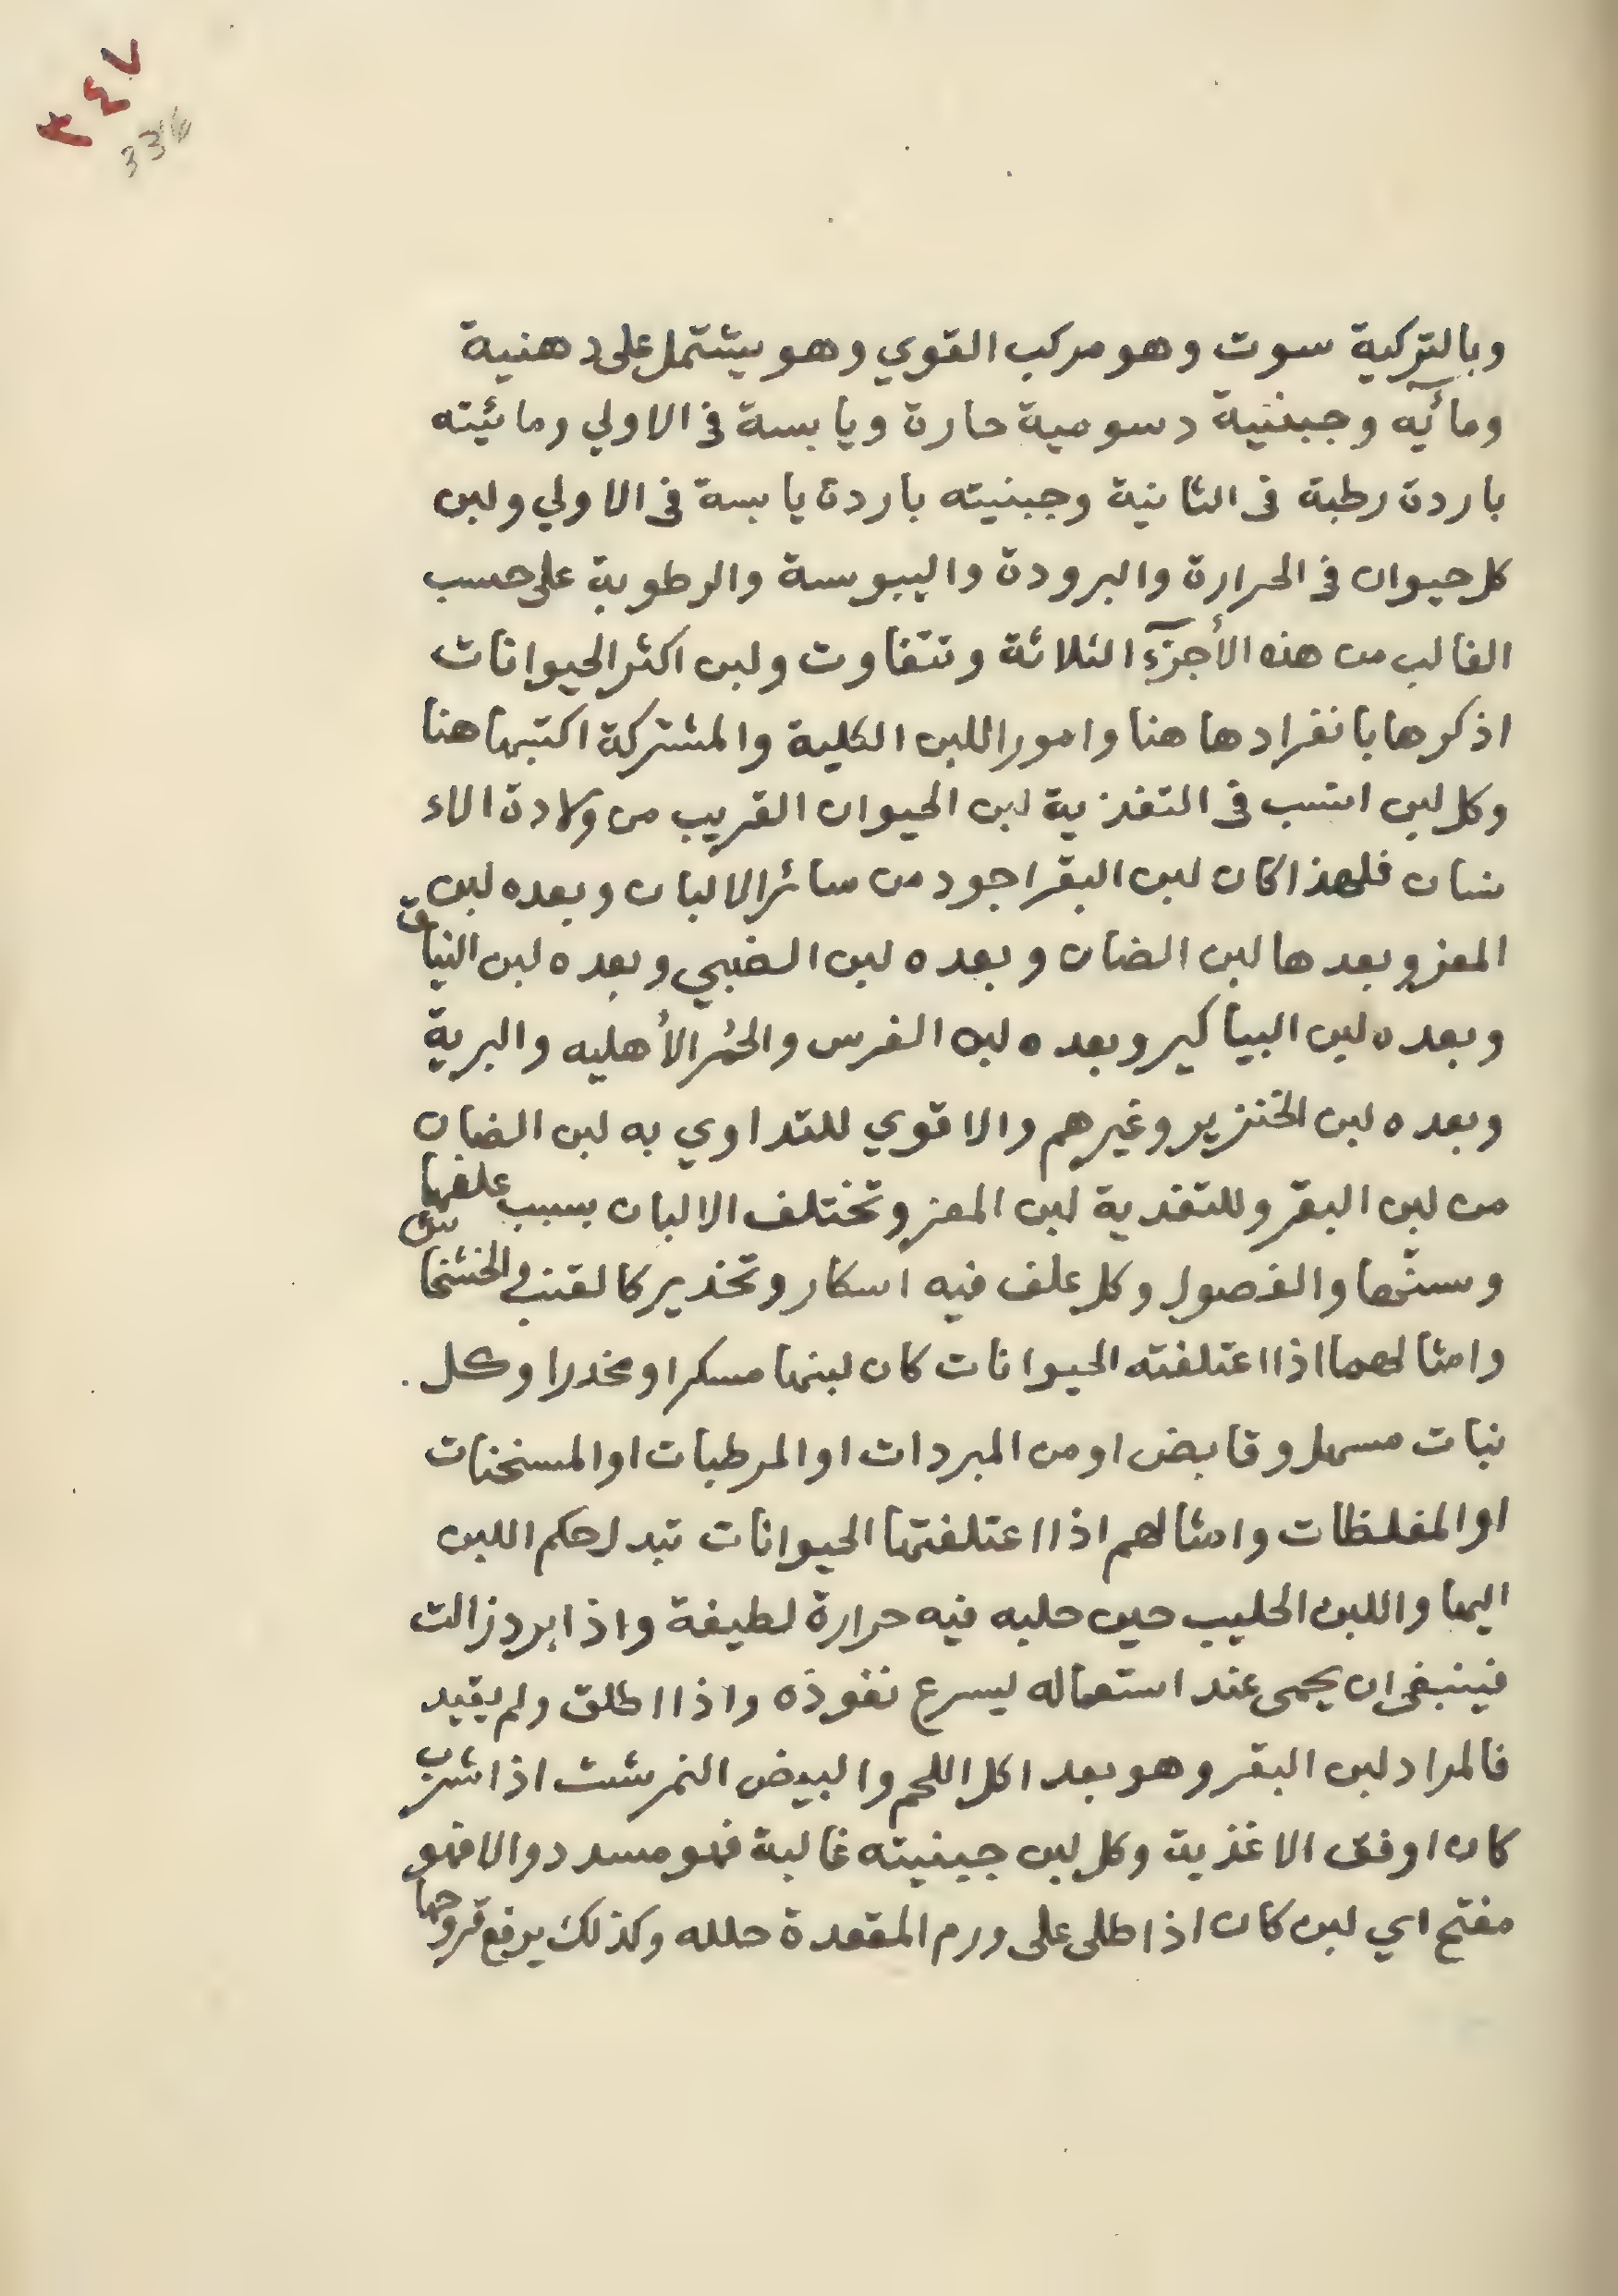 ٣٤٧
وبالتركية سوت وهو مركب القوي وهو يشتمل على دهنية
ومائية وجبنية دسومية حارة ويابسة فى الاولي ومائيته
باردة رطبة فى الثانية وجبنيته باردة يابسة فى الاولي ولبن
كل حيوان فى الحرارة والبرودة واليبوسة والرطوبة على حسب
الغالب من هذه الأجزآء الثلاثة وتتفاوت ولبن اكثر الحيوانات
اذكرها بانفرادها هنا وامور اللبن الكلية والمشتركة اكتبها هنا
وكل لبن انسب فى التغذية لبن الحيوان القريب من ولادة الاء
نسان فلهذا كان لبن البقر اجود من سائر الالبان وبعده لبن
المعز وبعدها لبن الضان وبعده لبن الضبي وبعده لبن النياق
وبعده لبن البياكير وبعده لبن الفرس والحُمر الأهليه والبرية
وبعده لبن الخنزير وغيرهم والاقوي للتداوي به لبن الضان
من لبن البقر وللتغدية لبن المعز وتختلف الالبان بسبب علفها
وسنّها والفصول وكل علف فيه اسكار وتخذير كالقنب والخشخاش
وامثالهما اذا اعتلفته الحيوانات كان لبنها مسكرا ومخدرا وكل
نبات مسهل وقابض او من المبردات او المرطبات او المسخنات
او المغلظات وامثالهم اذا اعتلفتها الحيوانات تبدل حكم اللبن
اليها واللبن الحليب حين حلبه فيه حرارة لطيفة واذا برد زالت
فينبغى ان يحمى عند استعماله ليسرع نفوذه واذا اطلق ولم يقيد
فالمراد لبن البقر وهو بعد اكل اللحم والبيض النمرشت اذا شرب
كان اوفق الاغذية وكل لبن جبنيته غالبة فهو مسدد والا فهو
مفتح اي لبن كان اذا طلى على ورم المقعدة حلله وكذلك يرفع قروحها